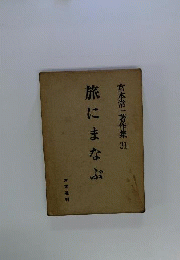 宮本常一著作集 31
旅にまなぶ
未来社